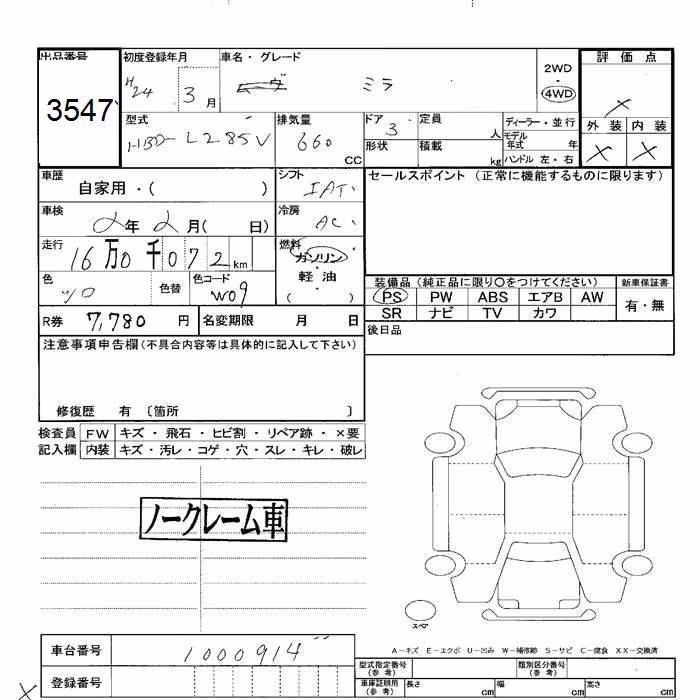 出品番号 初度登録年月 車名・グレード 2WD 評価点
3547 H24 3月 ミラ 4WD ×
型式 排気量 ドア 定員 ディーラー・並行 外装 内装
HBD-L285V 660 CC 3 人 モデル年式 年 × ×
形状 積載 kg ハンドル 左・右
車歴 自家用・( ) シフト IAT セールスポイント (正常に機能するものに限ります)
車検 2年2月( 日) 冷房 AC
走行 16万0千072km 燃料 ガソリン・軽油 ( )
色 色替 色コード W09
装備品 (純正品に限り○をつけてください) 新車保証書
PS PW ABS エアB AW 有・無
SR ナビ TV カワ
R券 7,780 円 名変期限 月 日 後日品
注意事項申告欄(不具合内容等は具体的に記入して下さい)
修復歴 有 〔箇所 〕
検査員 FW キズ・飛石・ヒビ割・リペア跡・×要
記入欄 内装 キズ・汚レ・コゲ・穴・スレ・キレ・破レ
ノークレーム車
スペア
A-キズ E-エクボ U-凹み W-補修跡 S-サビ C-腐食 XX-交換済
車台番号 1000914
登録番号
型式指定番号(参考) 類別区分番号(参考)
車庫証明用(参考) 長さ cm 幅 cm 高さ cm
×